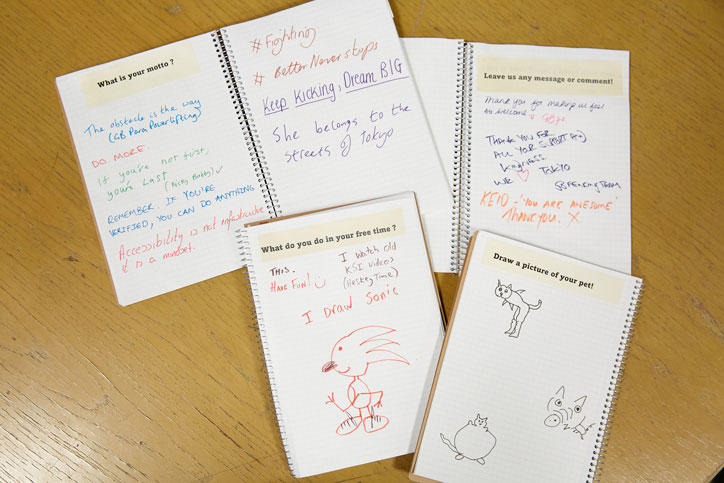 What is your motto ?
The obstacle is the way
(GB Para Powerlifting)
DO MORE.
If you're not first,
yours Last (Ricky Bobby)
REMEMBER. IF YOU'RE
VERIFIED, YOU CAN DO ANYTHING
Accessibility is not infrastructure
it is a mindset.
#Fighting
# Better Never stops
Keep Kicking, Dream BIG
She belongs to the
streets of Tokyo
Leave us any message or comment!
Thank you for making us feel
so welcome
THANK YOU FOR
ALL YOUR SUPPORT AND
Kindness
WE TOKYO
GB FENCING TEAM
KEIO - 'YOU ARE AWESOME'
THANK YOU. X
What do you do in your free time ?
THIS.
HAVE FUN! :)
I watch old
KSI videos
(Heskey Time)
I DRAW Sonic
Draw a picture of your pet!